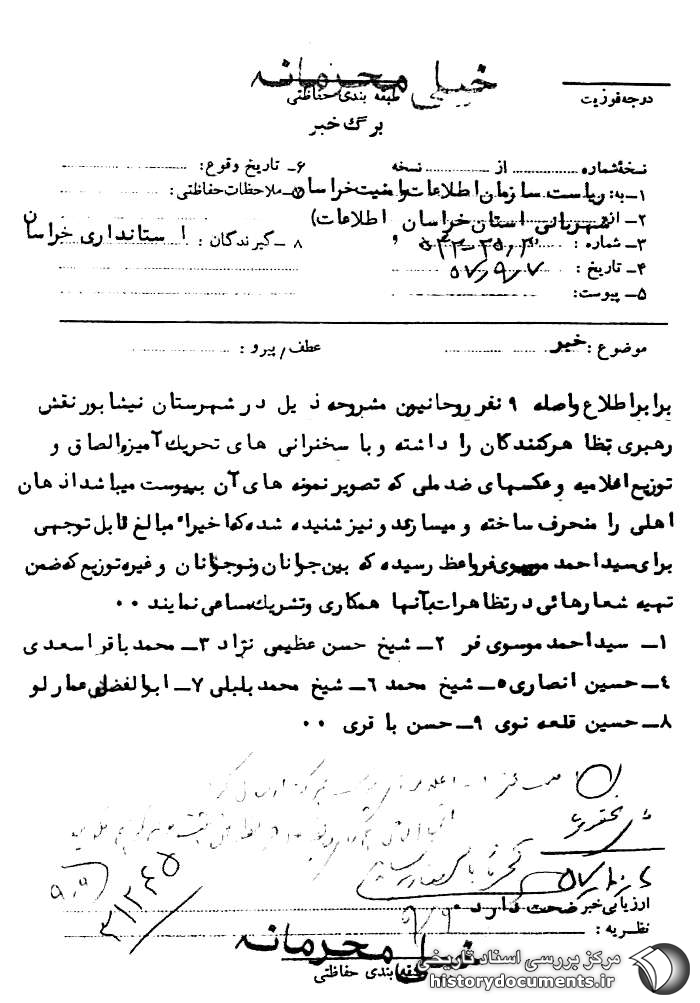 خیلی محرمانه
درجه فوریت
طبقه بندی حفاظتی
برگ خبر
نسخه شماره ........ از ........ نسخه
۱ـ به: ریاست سازمان اطلاعات وامنیت خراسان
۲ـ از: شهربانی استان خراسان (اطلاعات)
۳ـ شماره :
۴ـ تاریخ : ۵۷٫۹٫۷
۵ـ پیوست:
۶ـ تاریخ وقوع:
۷ـ ملاحظات حفاظتی:
۸ ـ گیرندگان : استانداری خراسان
موضوع : خبر
عطف / پیرو :
برابر اطلاع واصله ۹ نفر روحانیون مشروحه ذیل در شهرستان نیشابور نقش
رهبری تظاهرکنندگان را داشته و با سخنرانی های تحریک آمیز والصاق و
توزیع اعلامیه و عکسهای ضد ملی که تصویر نمونه های آن بپیوست میباشد اذهان
اهلی را منحرف ساخته و میسازند و نیز شنیده شده که اخیرا" مبالغ قابل توجهی
برای سید احمد موسوی فر واعظ رسیده که بین جوانان ونوجوانان و غیره توزیع که ضمن
تهیه شعارهائی در تظاهرات بآنها همکاری و تشریک مساعی نمایند ۰۰
۱ـ سید احمد موسوی فر ۲ـ شیخ حسن عظیمی نژاد ۳ـ محمد باقر اسعدی
۴ـ حسین انصاری ۵ـ شیخ محمد ۶ـ شیخ محمد بلبلی ۷ـ ابوالفضل عمارلو
۸ـ حسین قلعه نوی ۹ـ حسن باقری ۰۰
۳۱۳۴۵
ارزیابی خبر صحت دارد ۰
نظریه :
خیلی محرمانه
طبقه بندی حفاظتی
مرکز بررسی اسناد تاریخی
historydocuments.ir